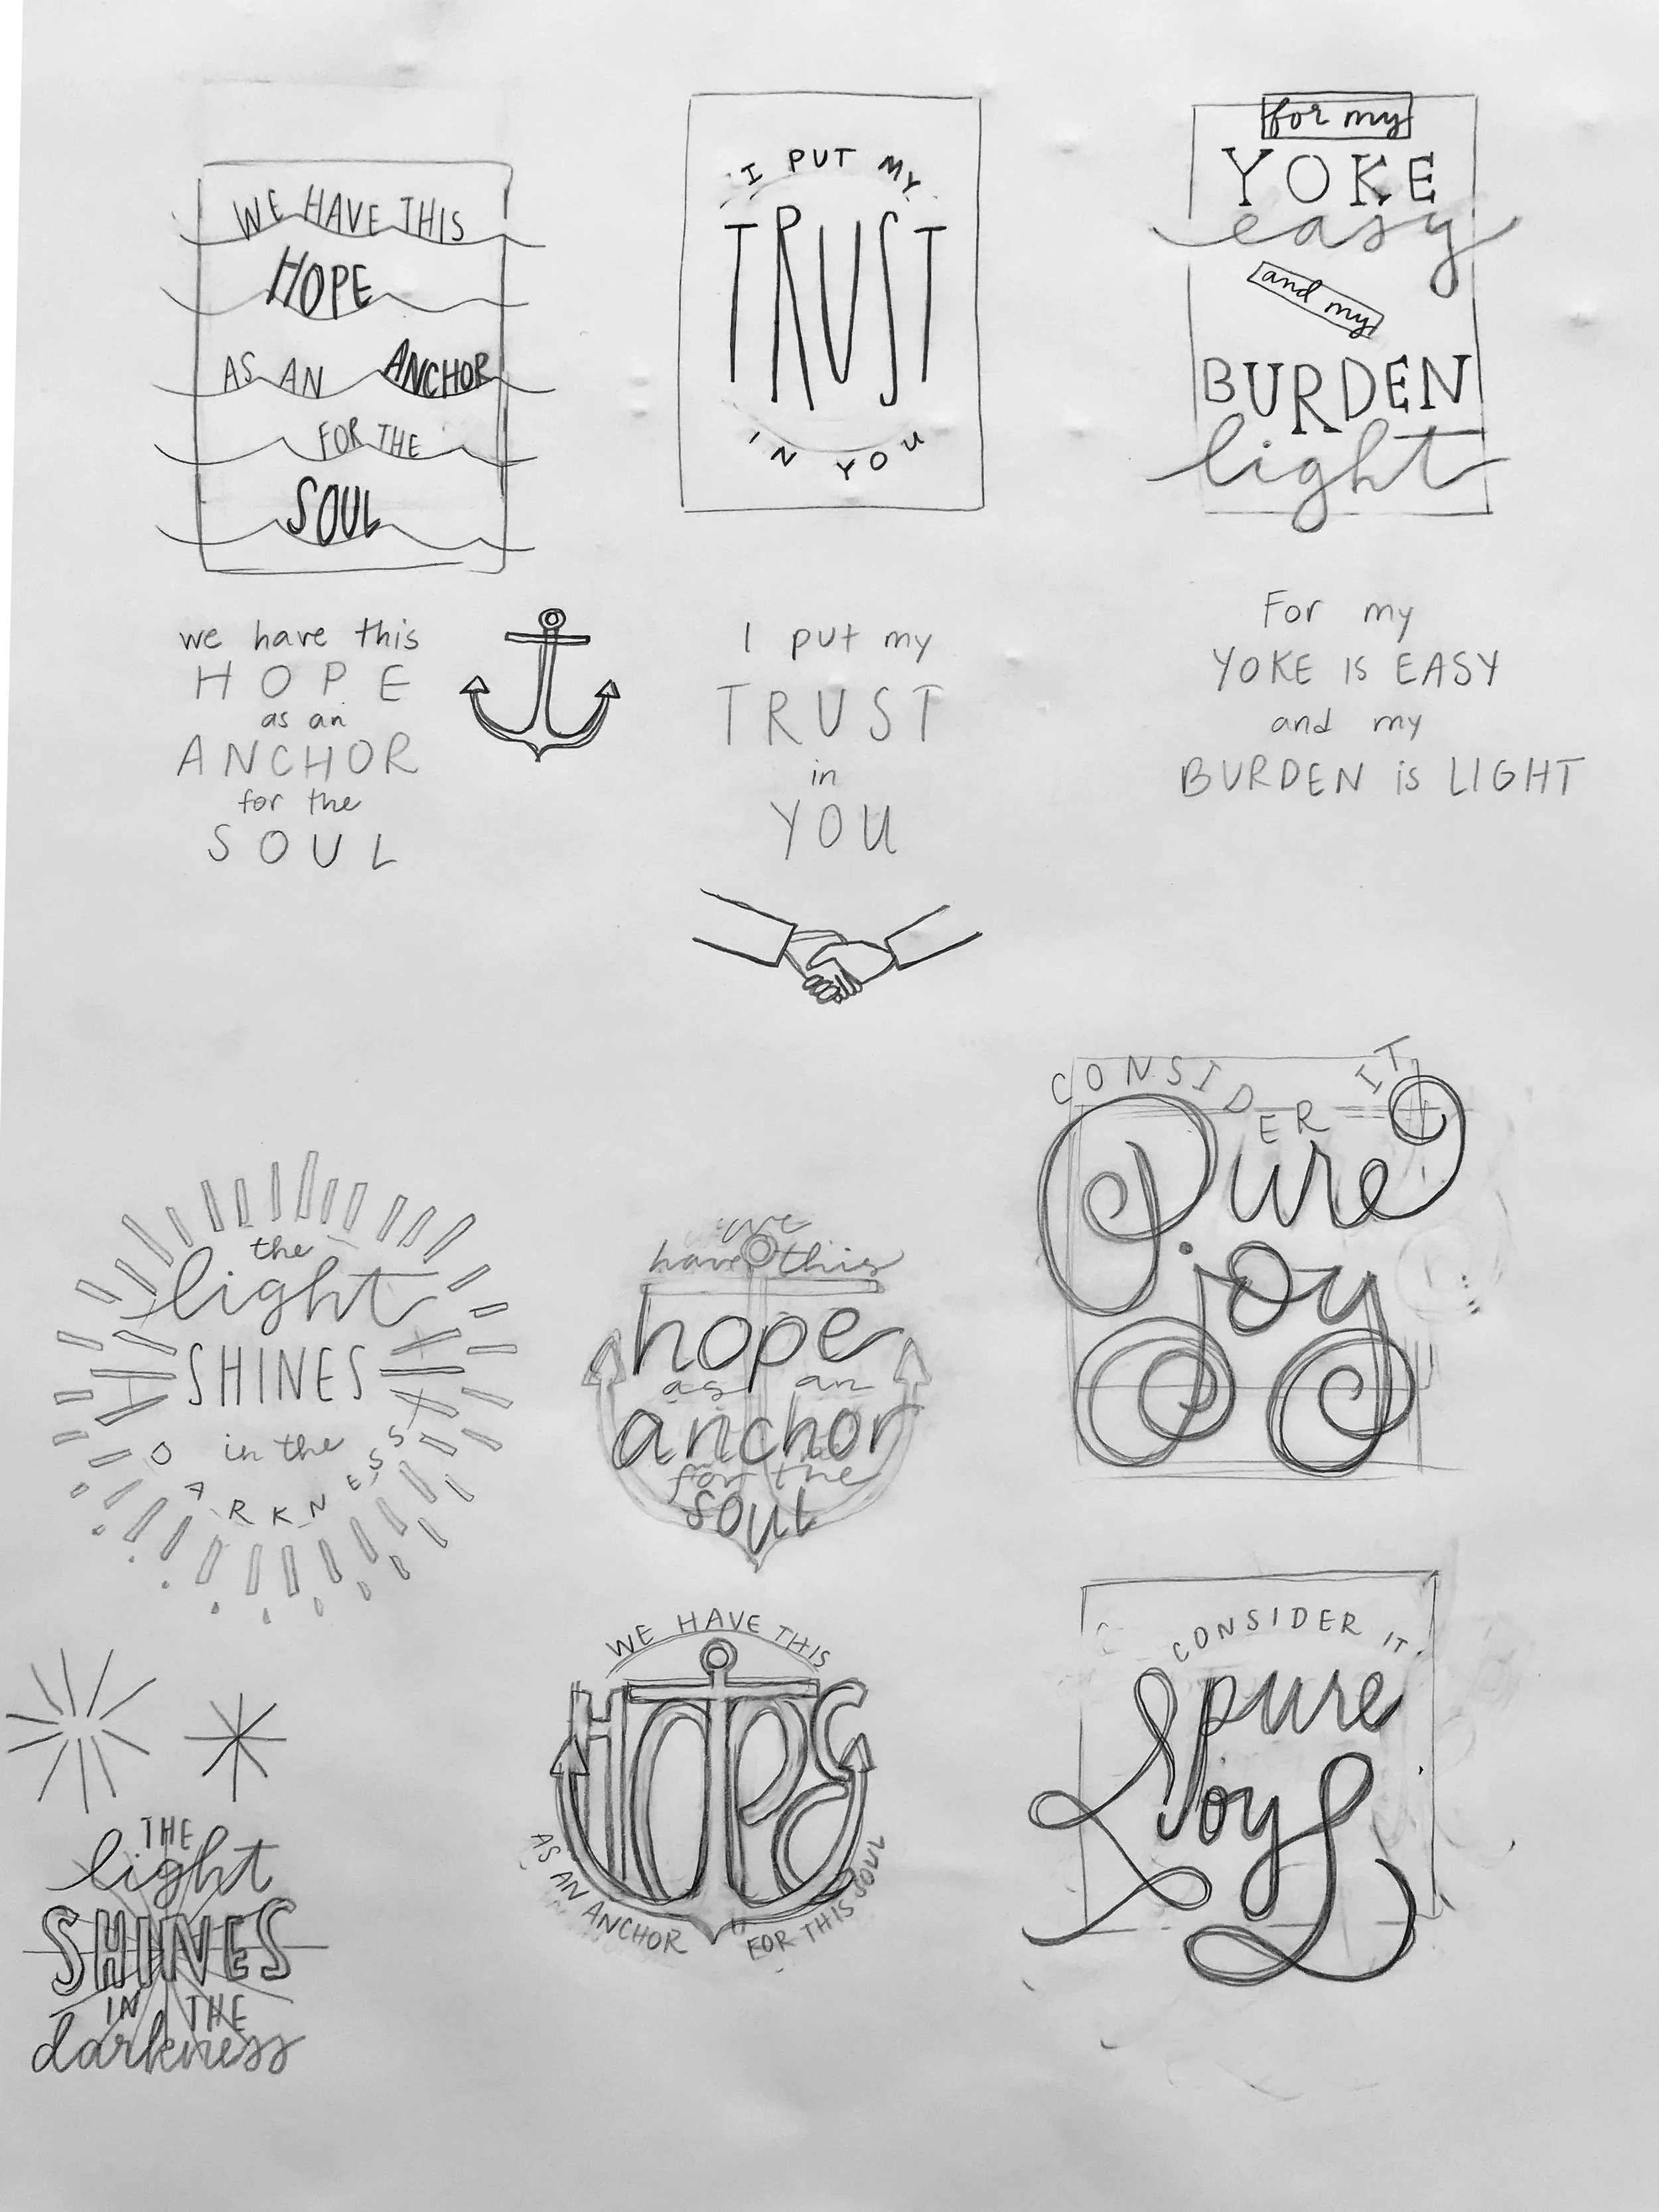 WE HAVE THIS
HOPE
AS AN ANCHOR
FOR THE
SOUL
I PUT MY
TRUST
IN YOU
for my
YOKE
easy
and my
BURDEN
light
we have this
HOPE
as an
ANCHOR
for the
SOUL
I put my
TRUST
in
YOU
For my
YOKE IS EASY
and my
BURDEN is LIGHT
the
light
SHINES
in the
DARKNESS
we
have this
hope
as an
anchor
for the
soul
CONSIDER IT
Pure
joy
THE
light
SHINES
IN THE
darkness
WE HAVE THIS
HOPE
AS AN ANCHOR
FOR THIS SOUL
CONSIDER IT
pure
joy